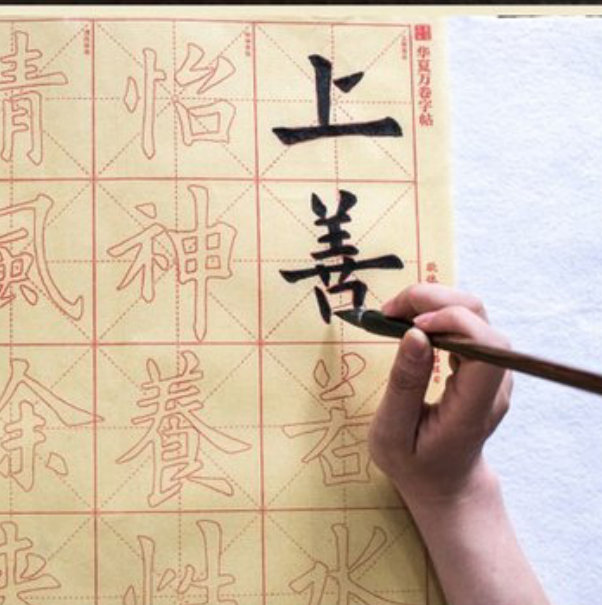 华夏万卷字帖
上善若水
怡神養性
清風徐來